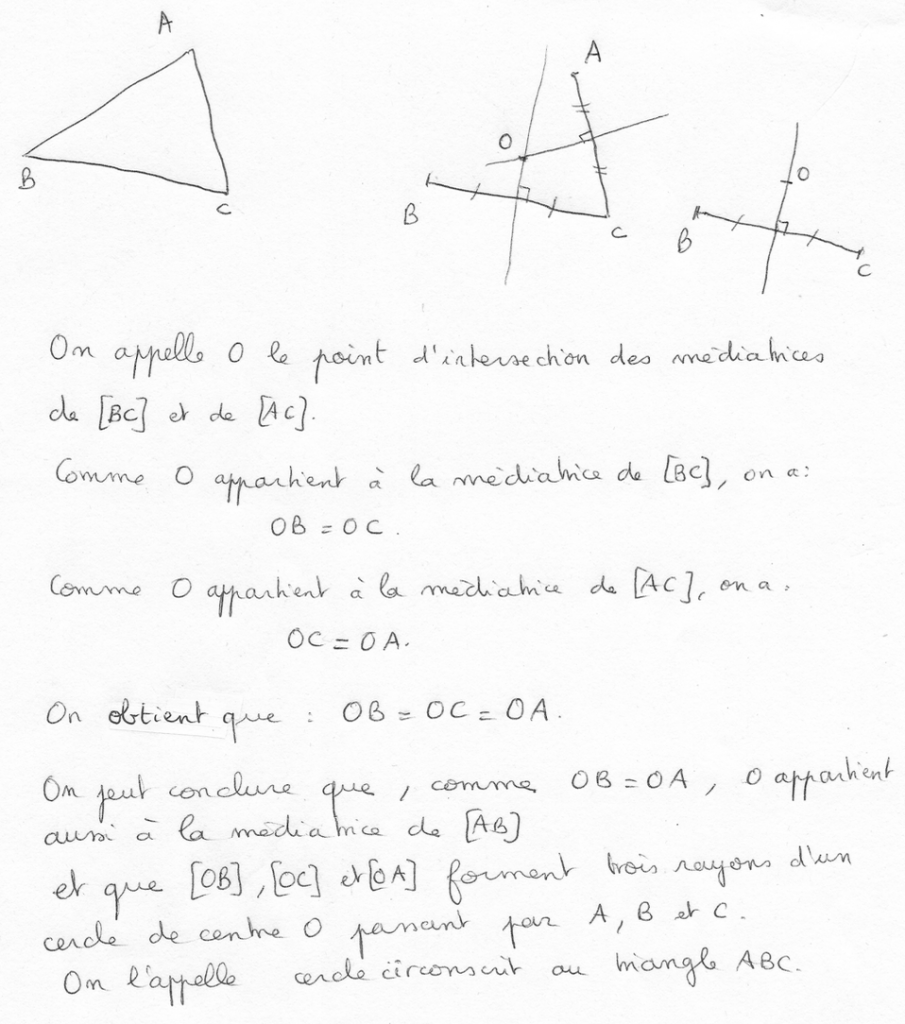 A
B
C
A
O
B
C
O
B
C
On appelle O le point d'intersection des médiatrices
de [BC] et de [AC].
Comme O appartient à la médiatrice de [BC], on a:
OB = OC.
Comme O appartient à la médiatrice de [AC], on a.
OC = OA.
On obtient que : OB = OC = OA.
On peut conclure que, comme OB = OA, O appartient
aussi à la médiatrice de [AB]
et que [OB], [OC] et [OA] forment trois rayons d'un
cercle de centre O passant par A, B et C.
On l'appelle cercle circonscrit au triangle ABC.